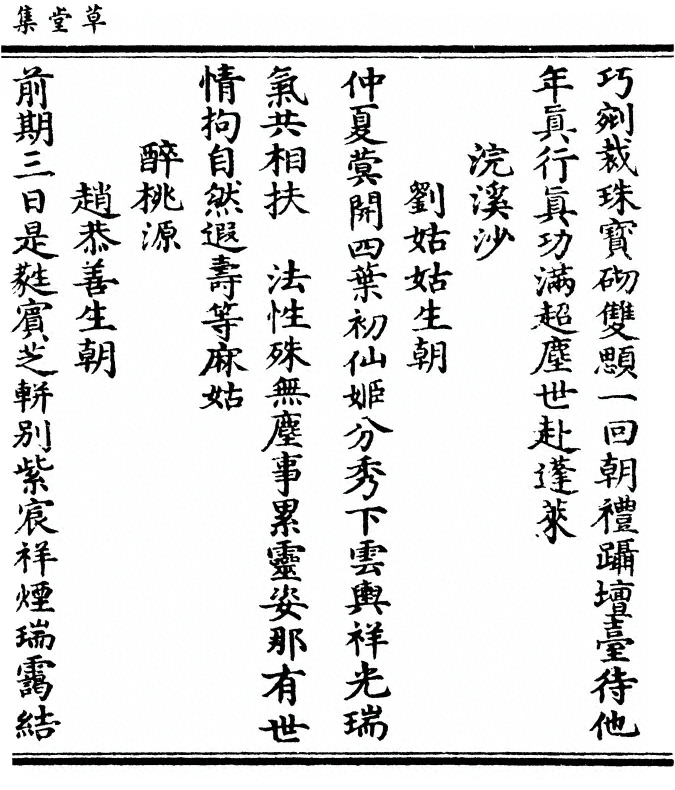 草堂集
巧剜裁珠寶砌雙顋一回朝禮躡壇臺待他
年眞行眞功滿超塵世赴蓬萊
浣溪沙
劉姑姑生朝
仲夏蓂開四葉初仙姬分秀下雲輿祥光瑞
氣共相扶　法性殊無塵事累靈姿那有世
情拘自然遐壽等麻姑
醉桃源
趙恭善生朝
前期三日是蕤賓芝軿別紫宸祥煙瑞靄結